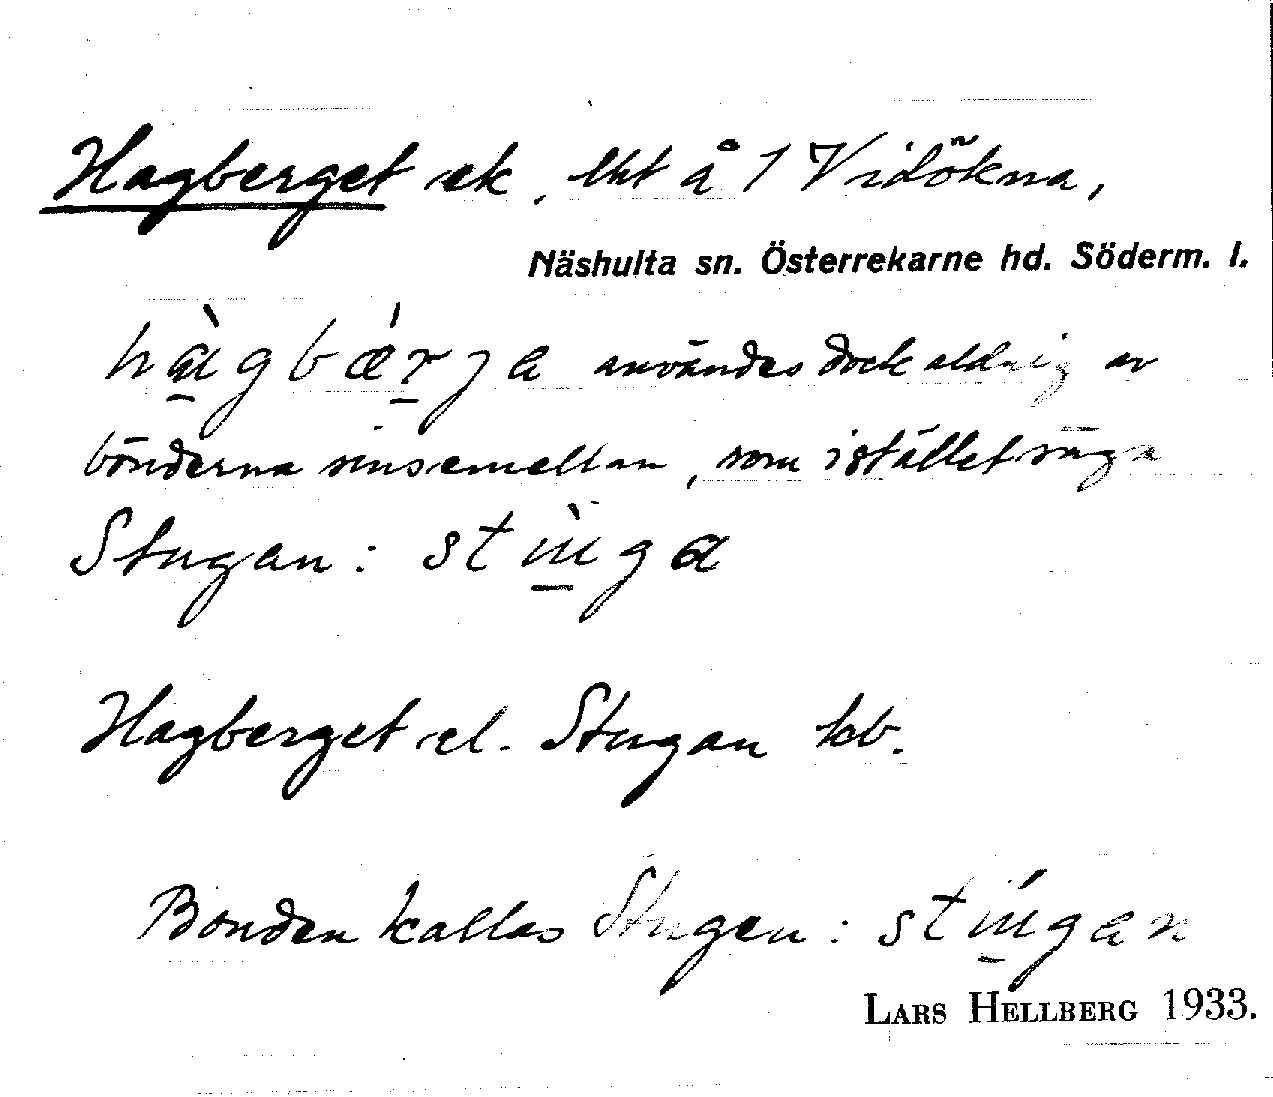 Hagberget ek, lht å 1 Vidökna,
Näshulta sn. Österrekarne hd. Söderm. l.
hàgbǽrja användes dock aldrig av
bönderna sinsemellan, som istället säga
Stugan: stùga
Hagberget el. Stugan kb.
Bonden kallas Stugen: stúgan
LARS HELLBERG 1933.